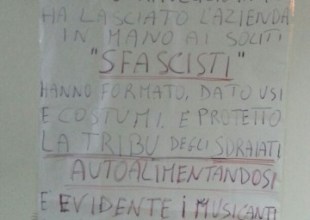 HA LASCIATO L'AZIENDA
IN MANO AI SOLITI
"SFASCISTI"
HANNO FORMATO, DATO USI
E COSTUMI, E PROTETTO
LA TRIBU DEGLI SDRAIATI
AUTOALIMENTANDOSI
E EVIDENTE I MUSICANTI